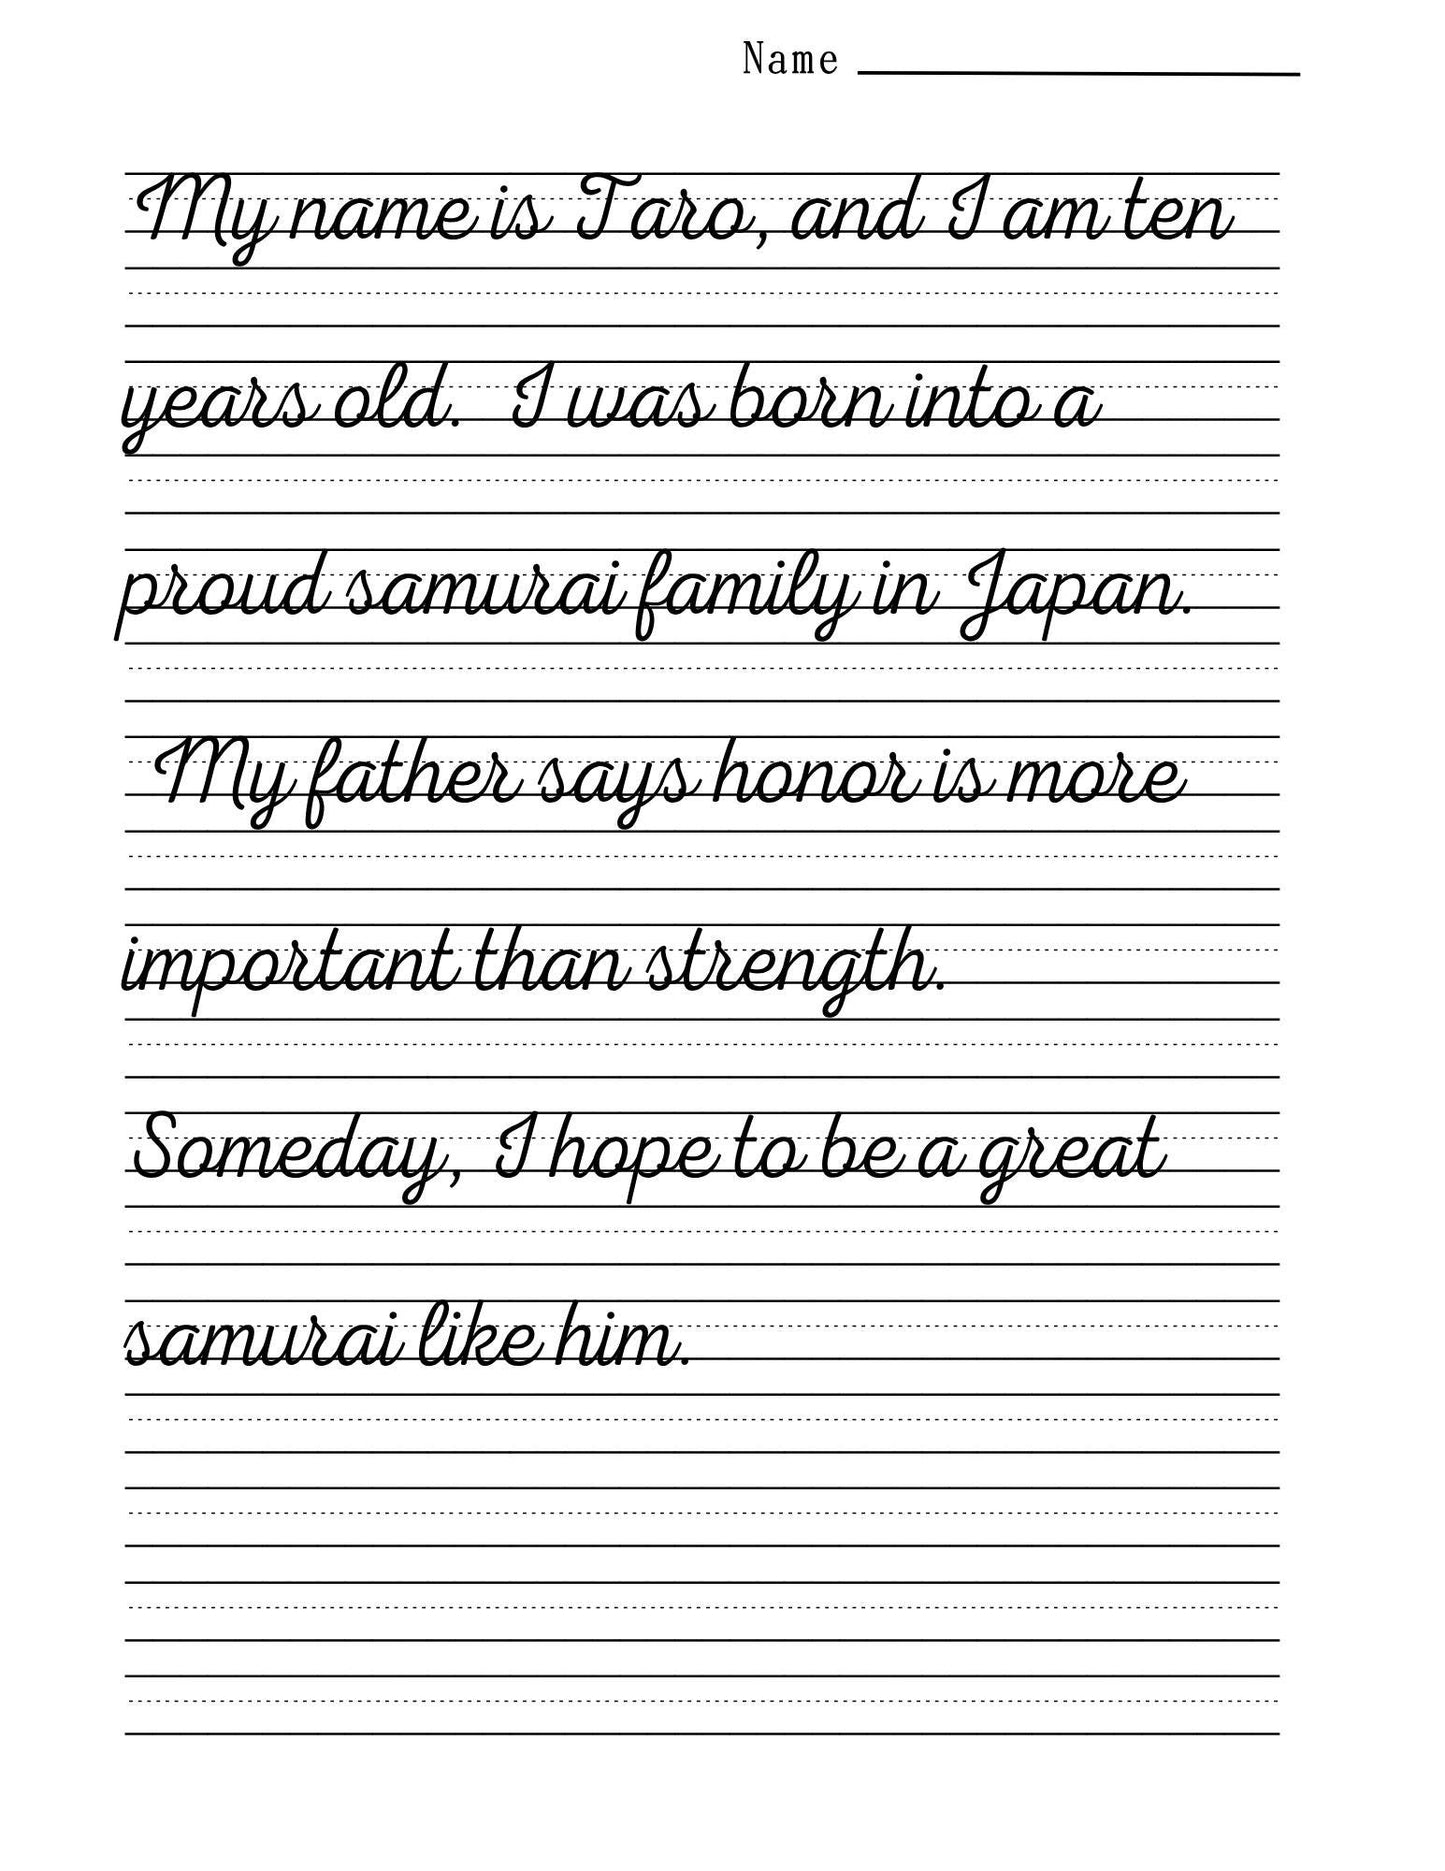 Name
My name is Taro, and I am ten
years old. I was born into a
proud samurai family in Japan.
My father says honor is more
important than strength.
Someday, I hope to be a great
samurai like him.